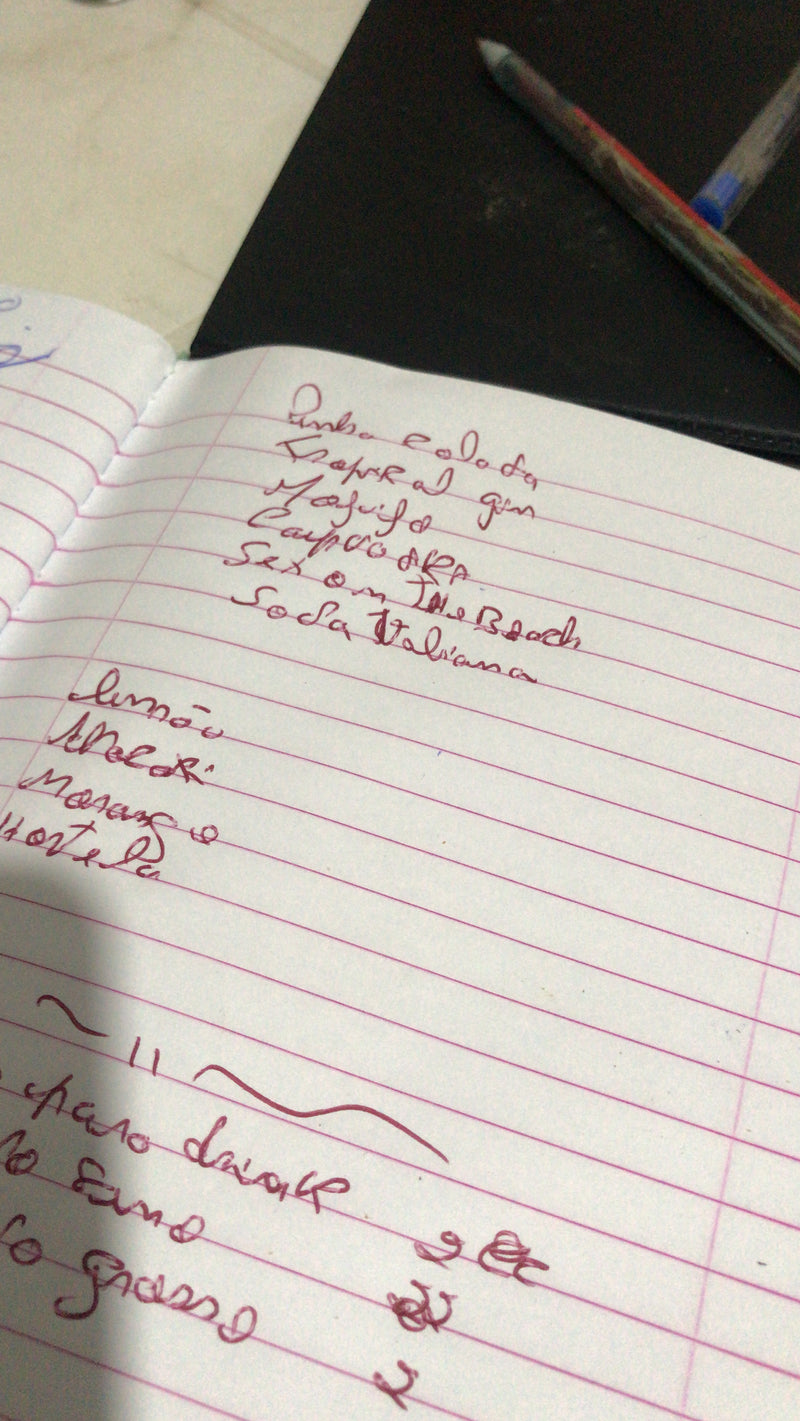 Pinha colada
Tropical gin
Mogito
Caipiroska
Sex on The Beach
Soda Italiana
limão
Abacaxi
Morango
Hortela
para drink
fino
grosso
2